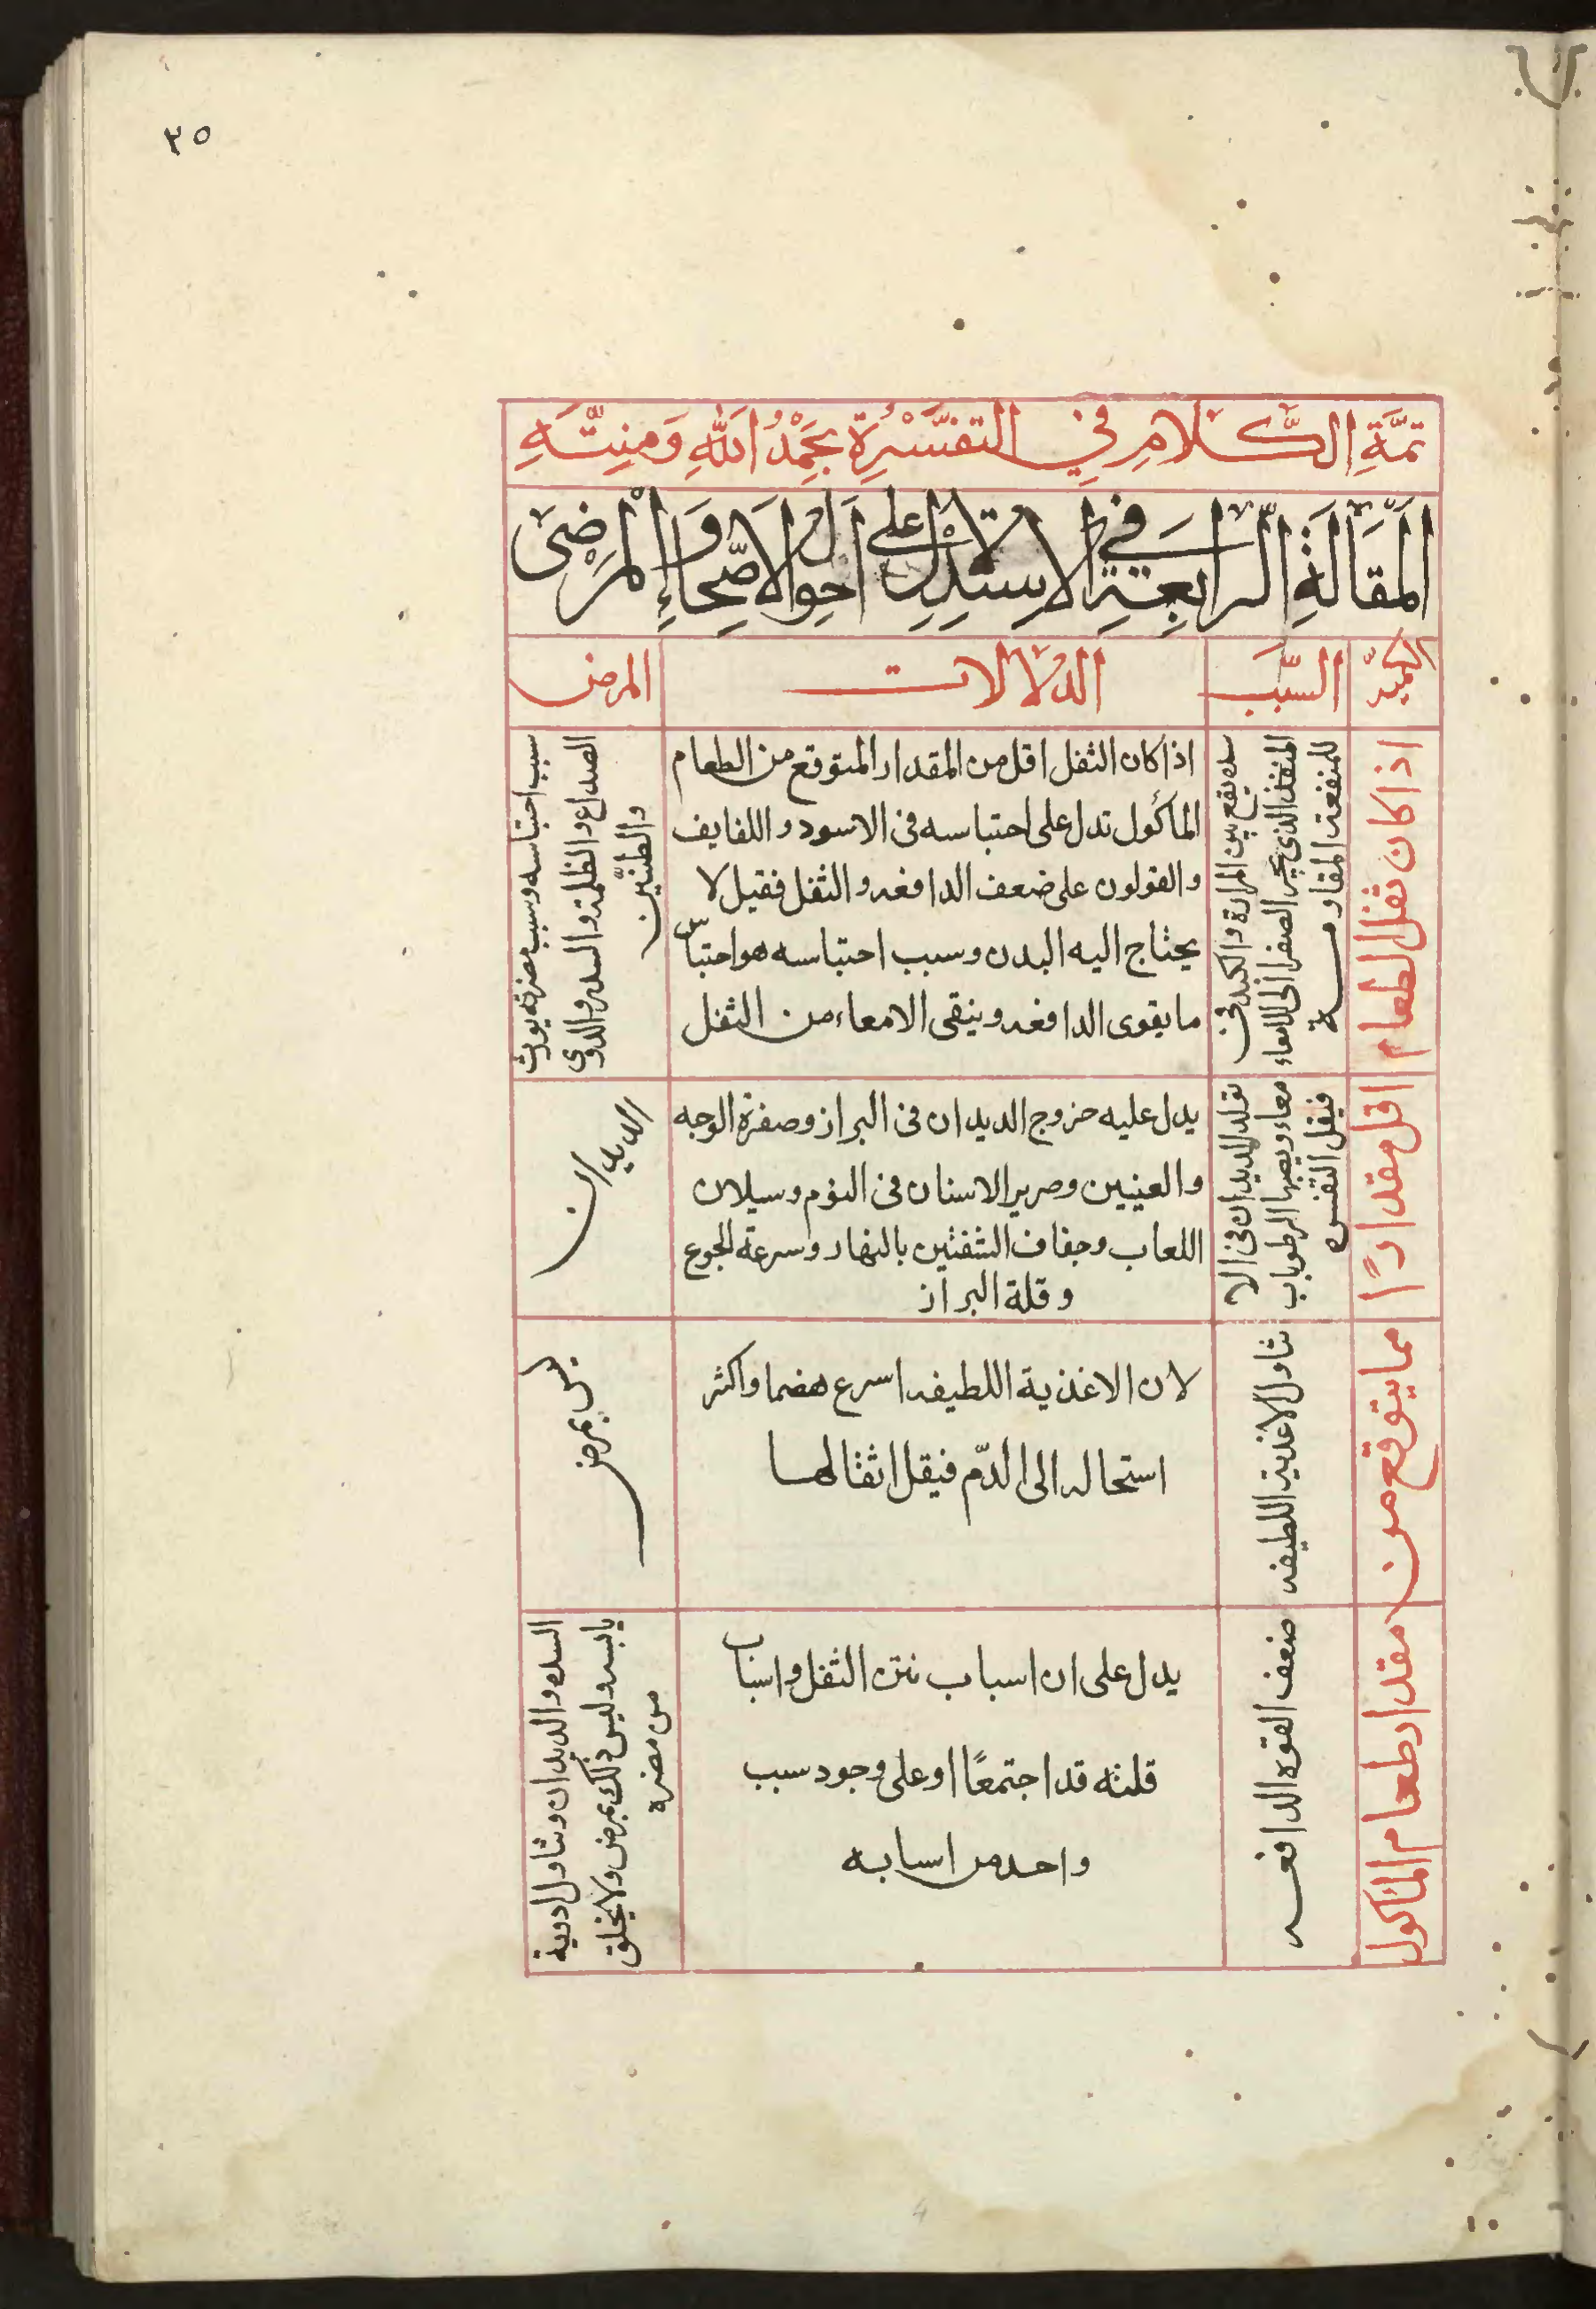 ٣٥
تمَّةِ الكَّلامِ في التفسَّرِة بحَمْدُ اللّهِ وَمنِتَّهِ
المَقَالَةِ الرابعةِ في الاستدلال على احوال الاصِّحاءِ والمرضىَ
السَّبب
الدلالات
المرض
اذا كان ثفل الطعام
اقل مقداراً
مما يتوقع من
مقدار طعام المأكول
سده تقع بين المرارة والكبد في
المنفذ الذي يجر الصفرا الى الامعاء
للمنفعة المقاومة
اذا كان الثفل اقل من المقدار المتوقع من الطعام
المأكول تدل على احتباسه فى الاسود واللفايف
والقولون على ضعف الدافغه والثفل فقيل لا
يحتاج اليه البدن وسبب احتباسه هو احتباس
ما يقوى الدافغه وينقى الامعاء من الثفل
سبب احتباسه وسبب مضرته يورث
الصداع والظلمة والسدر والدوى
والطنيّن
تولد الديدان فى الا
معاء ويصبها الرطوبات
فيقل التفسره
يدل عليه خروج الديدان فى البراز وصفرة الوجه
والعينين وصرير الاسنان فى النوم وسيلان
اللعاب وجفاف الشفتين بالنهار وسرعة الجوع
وقلة البراز
الديدان
تناول الاغذية اللطيفه
لان الاغذية اللطيفه اسرع هضما واكثر
استحاله الى الدّم فيقل اثفالها
ليس بمرض
ضعف القوه الدافعه
يدل على ان اسباب نتن الثفل واسباب
قلته قد اجتمعًا او على وجود سبب
واحد من اسبابه
السده والديدان وتناول ادوية
يابسه وليس ذلك بمرض ولا يخلق
من مضرة